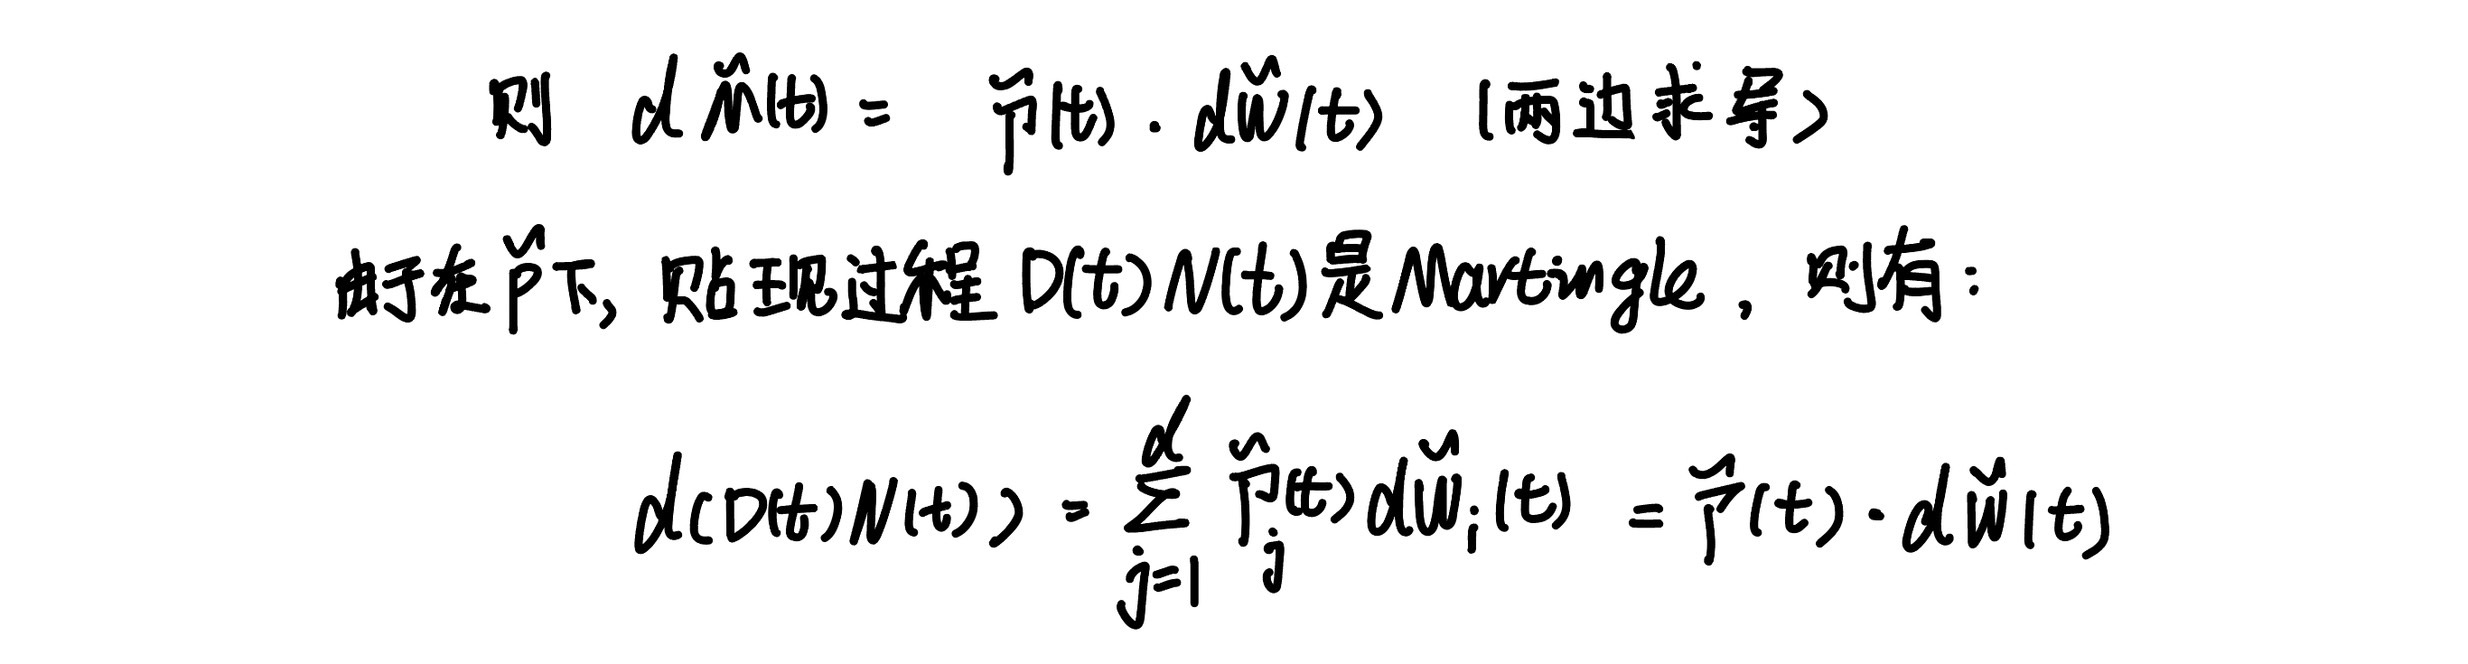 则 dM̃(t) = Γ̃(t) · dW̃(t) (两边求导)
由于在P̃下, 贴现过程 D(t)N(t)是Martingle, 则有:
d(D(t)N(t)) = ∑_{j=1}^{d} Γ̃_j(t) dW̃_i(t) = Γ̃(t) · dW̃(t)